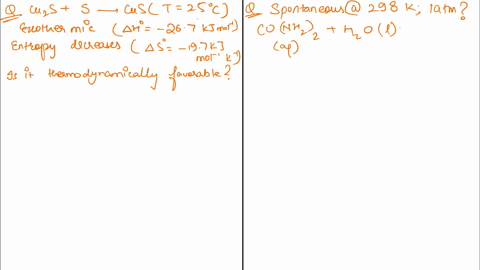 Q Cu2S + S → CuS ( T = 25°C)
Exothermic ( ΔH° = -26.7 kJ mol⁻¹)
Entropy decreases ( ΔS° = -19.7 kJ
mol⁻¹ K)
Is it thermodynamically favorable?
Q Spontaneous @ 298 K; 1 atm?
CO(NH2)2 + H2O(l)
(aq)